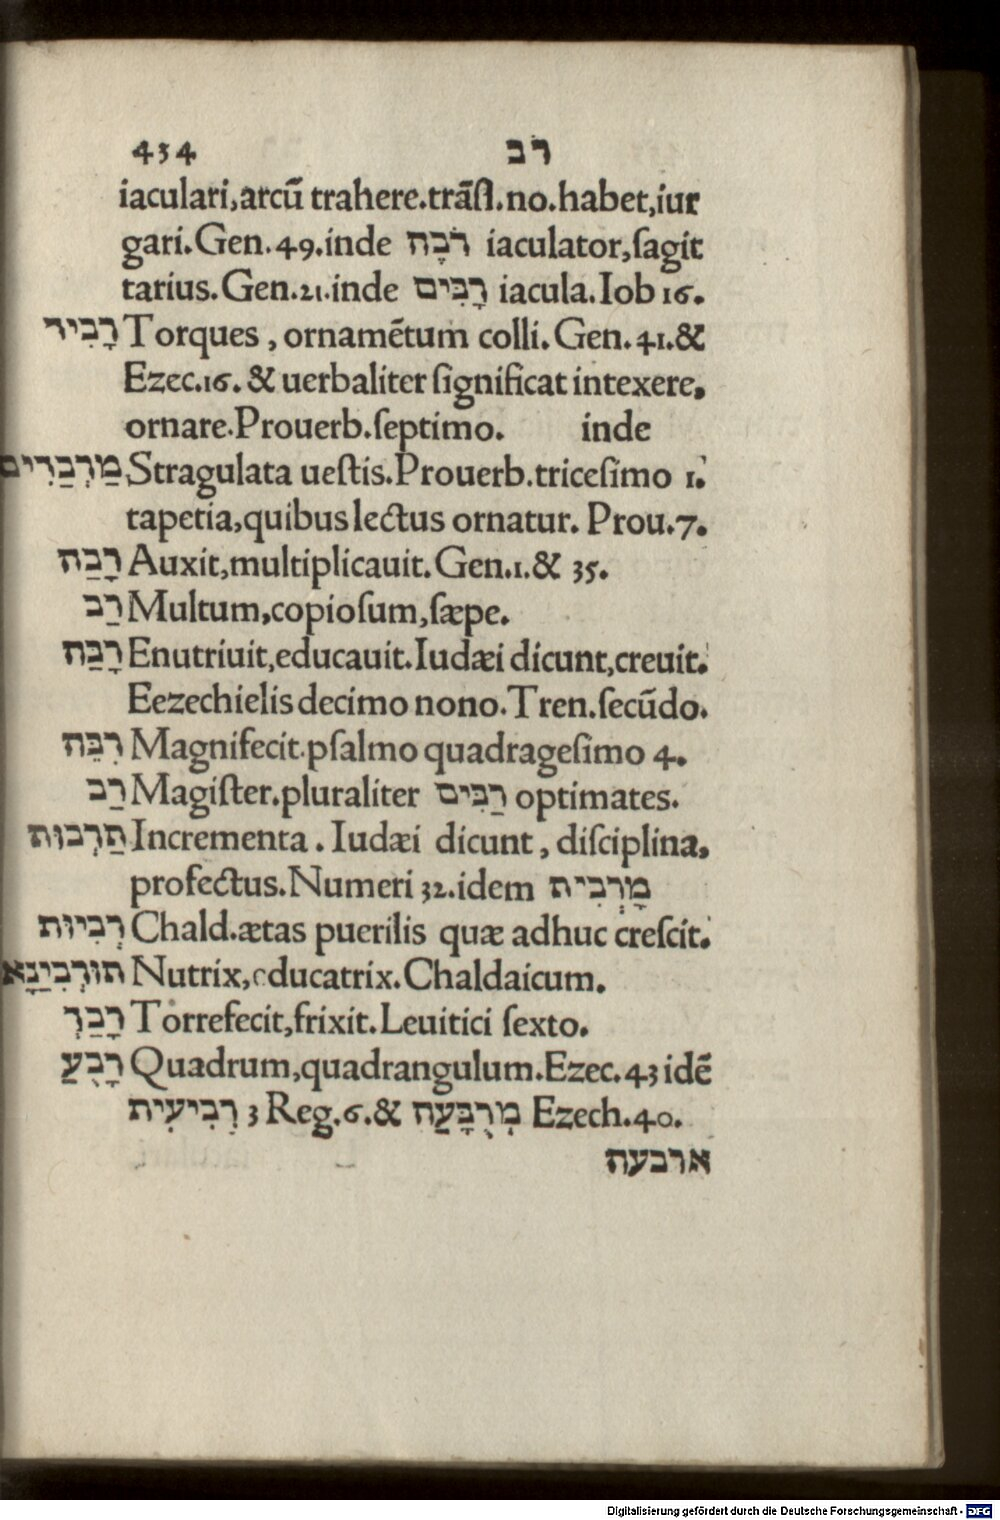 434 רב
iaculari,arcū trahere.trāſl.no.habet,iur
gari.Gen.49.inde רֹבֶה iaculator,ſagit
tarius.Gen.21.inde רָבִּים iacula.Iob 16.
רָבִיד Torques , ornamētum colli. Gen. 41.&
Ezec.16. & uerbaliter ſignificat intexere,
ornare.Prouerb.ſeptimo. inde
מַרְבַדִּים Stragulata ueſtis.Prouerb.triceſimo 1.
tapetia,quibus lectus ornatur. Prou.7.
רָבַה Auxit,multiplicauit. Gen.1.& 35.
רַב Multum,copioſum,ſæpe.
רָבַּה Enutriuit,educauit.Iudæi dicunt,creuit.
Eezechielis decimo nono.Tren.ſecūdo.
רִבֵּה Magnifecit.pſalmo quadrageſimo 4.
רַב Magiſter.pluraliter רַבִּים optimates.
תַרְבוּת Incrementa . Iudæi dicunt , diſciplina,
profectus.Numeri 32.idem מָרְבִית
רְבִיוּת Chald.ætas puerilis quæ adhuc creſcit.
תוּרְבִיַנָא Nutrix,educatrix.Chaldaicum.
רָבַךְ Torrefecit,frixit.Leuitici ſexto.
רָבֻעַ Quadrum,quadrangulum.Ezec.43 idē
רְבִיעִית 3 Reg.6.& מְרֻבָּעַה Ezech.40.
ארבעה
Digitalisierung gefördert durch die Deutsche Forschungsgemeinschaft - DFG